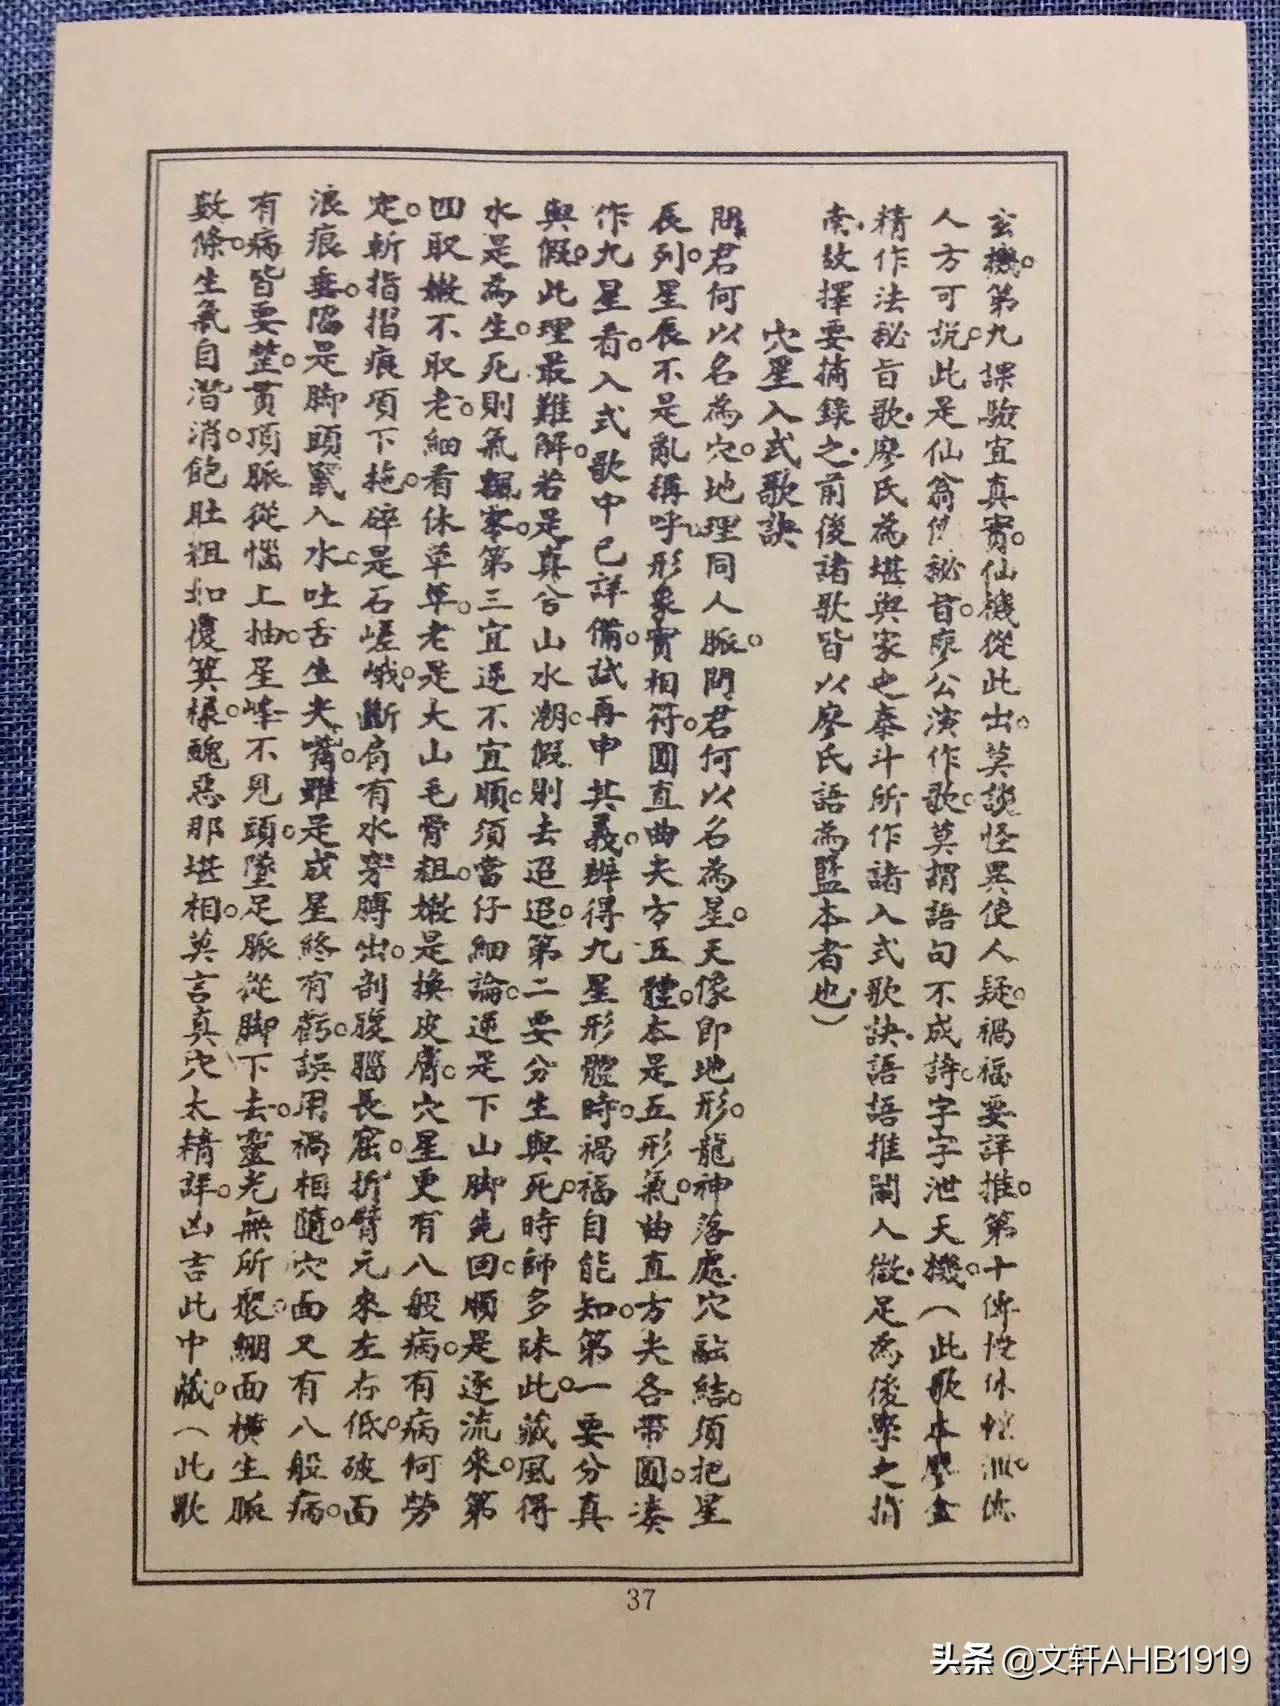 玄機。第九課驗宜真實。仙機從此出。莫談怪異使人疑。禍福要詳推。第十傳授休輕泄。傳
人方可說。此是仙翁傳秘旨。廖公演作歌。莫謂語句不成詩。字字泄天機。（此歌本廖金
精作法秘旨歌。廖氏為堪輿家之泰斗所作諸入式歌訣。語語推闡入微。足為後學之指
南。故擇要摘錄之。前後諸歌皆以廖氏語為藍本者也。）
穴星入式歌訣
問君何以名為穴。地理同人脈。問君何以名為星。天像即地形。龍神落處穴融結。須把星
辰列。星辰不是亂稱呼。形象實相符。圓直曲尖方五體。本是五形氣。曲直方尖各帶圓。湊
作九星看。入式歌中已詳備。試再申其義。辨得九星形體時。禍福自能知。第一要分真
與假。此理最難解。若是真兮山水潮。假則去迢迢。第二要分生與死。時師多昧此。藏風得
水是為生。死則氣飄零。第三宜逆不宜順。須當仔細論。逆是下山腳先回。順是逐流來。第
四取嫩不取老。細看休草草。老是大山毛骨粗。嫩是換皮膚。穴星更有八般病。有病何勞
定。斬指摺痕項下拖。碎是石嵯峨。斷肩有水穿膊出。剖腹腦長窟。折臂元來左右低。破面
浪痕垂。陷是腳頭竄入水。吐舌生尖嘴。雖是成星終有虧。誤用禍相隨。穴面又有八般病。
有病皆要整。貫頂脈從惱上抽。星峰不見頭。墜足脈從腳下去。靈光無所聚。繃面橫生脈
數條。生氣自潛消。飽肚粗如覆箕樣。醜惡那堪相。莫言真穴太精詳。凶吉此中藏。（此歌
37
头条 @文轩AHB1919